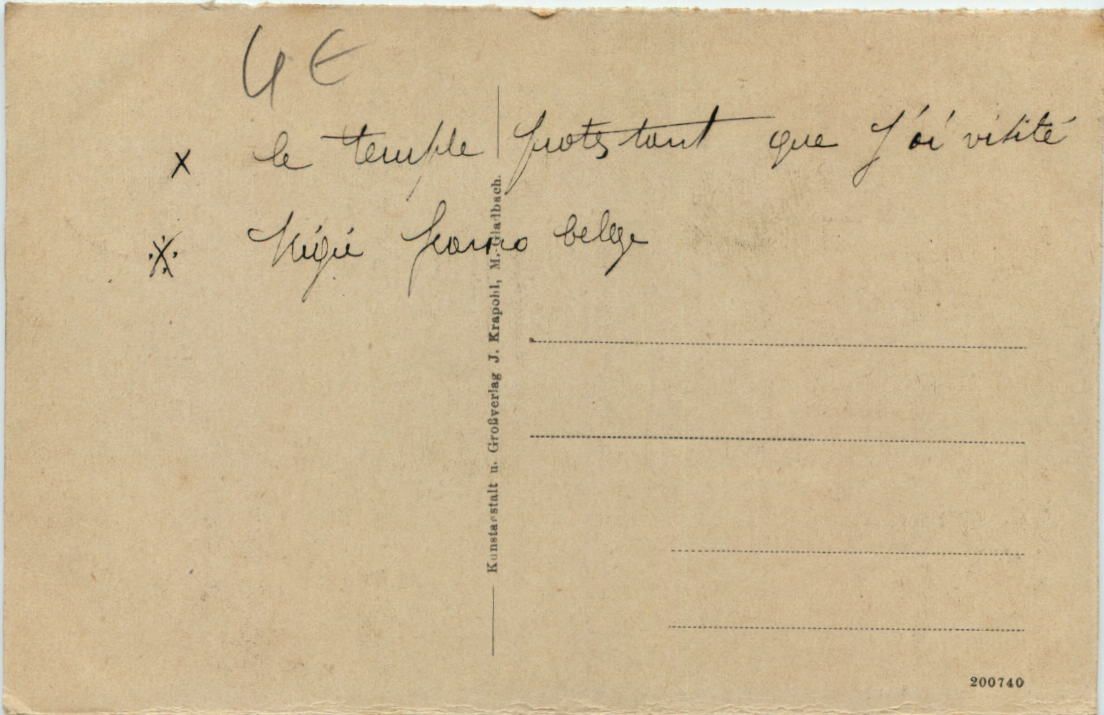 4 €
x le temple protestant que j'ai visité
Régie franco belge
Kunstanstalt u. Großverlag J. Krapohl, M. Gladbach.
200740